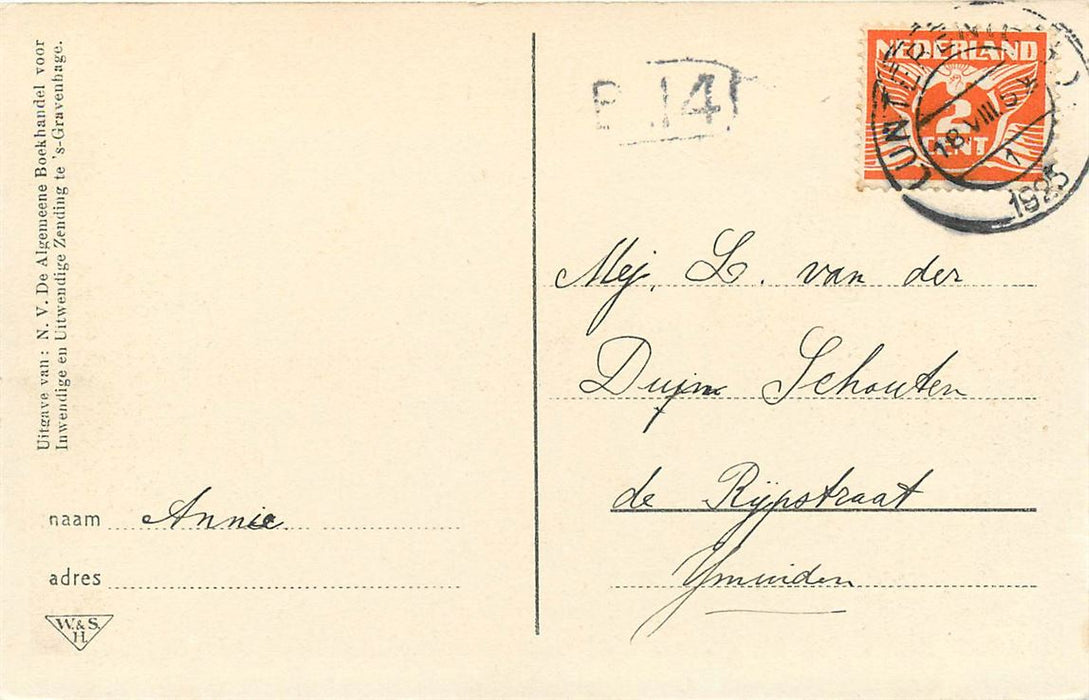 Uitgave van: N. V. De Algemeene Boekhandel voor
Inwendige en Uitwendige Zending te 's-Gravenhage.
14
NEDERLAND
2
CENT
18.VIII.5
1
1925
Mej. L. van der
Duijn Schouten
de Rijpstraat
Ymuiden
naam Annie
adres
W.&S.
H.